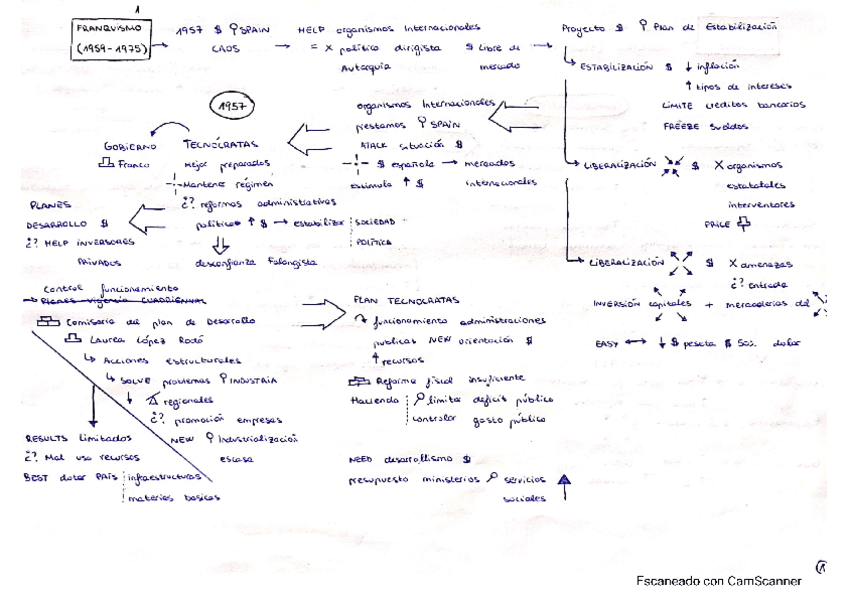 1
FRANQUISMO
(1959-1975)
1957 $ SPAIN
CAOS
HELP organismos Internacionales
= X político dirigista $ libre de
Autarquía mercado
Proyecto $ Plan de Estabilización
ESTABILIZACIÓN $ ↓ inflación
↑ tipos de intereses
LÍMITE creditos bancarios
FREEZE sueldos
LIBERALIZACIÓN $ X organismos
estatatales
interventores
PRICE
LIBERALIZACIÓN $ X amenazas
¿? Entrada
INVERSIÓN capitales + mercaderias del
EASY ↔ ↓ $ peseta $ dolar
1957
organismos Internacionales
prestamos SPAIN
ATACK situación $
$ española → mercados
estimula ↑ $ internacionales
GOBIERNO
Franco
TECNÓCRATAS
Mejor preparados
Mantener régimen
¿? reformas administrativas
política ↑ $ → estabilizar SOCIEDAD
POLÍTICA
desconfianza Falangista
PLANES
DESARROLLO $
¿? HELP INVERSORES
PRIVADOS
Control funcionamiento
PLANES vigencia CUADRIENNAL
Comisaria del plan de Desarrollo
Laurea López Rodó
Acciones estructurales
SOLVE problemas INDUSTRIA
↓ regionales
¿? promoción empresas
RESULTS limitados
¿? Mal uso recursos
BEST dotar PAÍS infraestructuras
materias basicas
NEW Industrialización
escasa
PLAN TECNOCRATAS
funcionamiento administraciones
publicas NEW orientación $
↑ recursos
Reforma fiscal insuficiente
Hacienda limitar deficit público
controlar gasto público
NEED desarrollismo $
presupuesto ministerios servicios
sociales
1
Escaneado con CamScanner